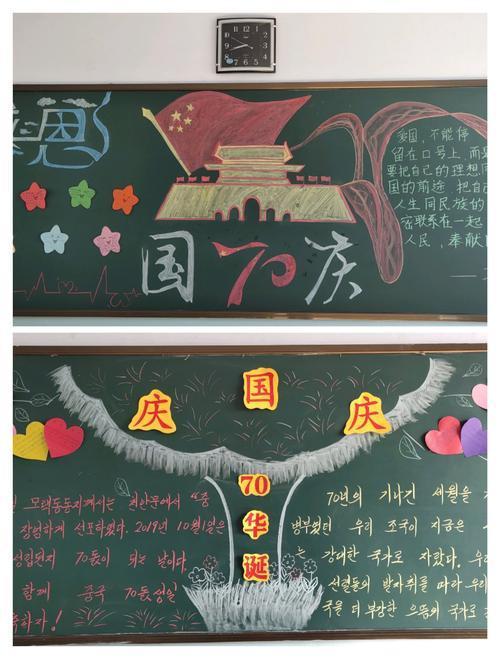 恩
爱国，不能停
留在口号上，而是
要把自己的理想同
国的前途，把自己
人生同民族的
密联系在一起
人民，奉献
国70庆
庆国庆
70
华
诞
모택동동지께서는 천안문에서 "중
장엄하게 선포하였다. 2019년 10月1일은
성립된지 70돐이 되는 날이다.
함께 중국 70돐생일
축하자!
70년의 기나긴 세월을
병부였던 우리 조국이 지금은
강대한 국가로 자랐다. 우
선렬들의 발자취를 따라 우리
국을 더 부강한 으뜸의 국가로